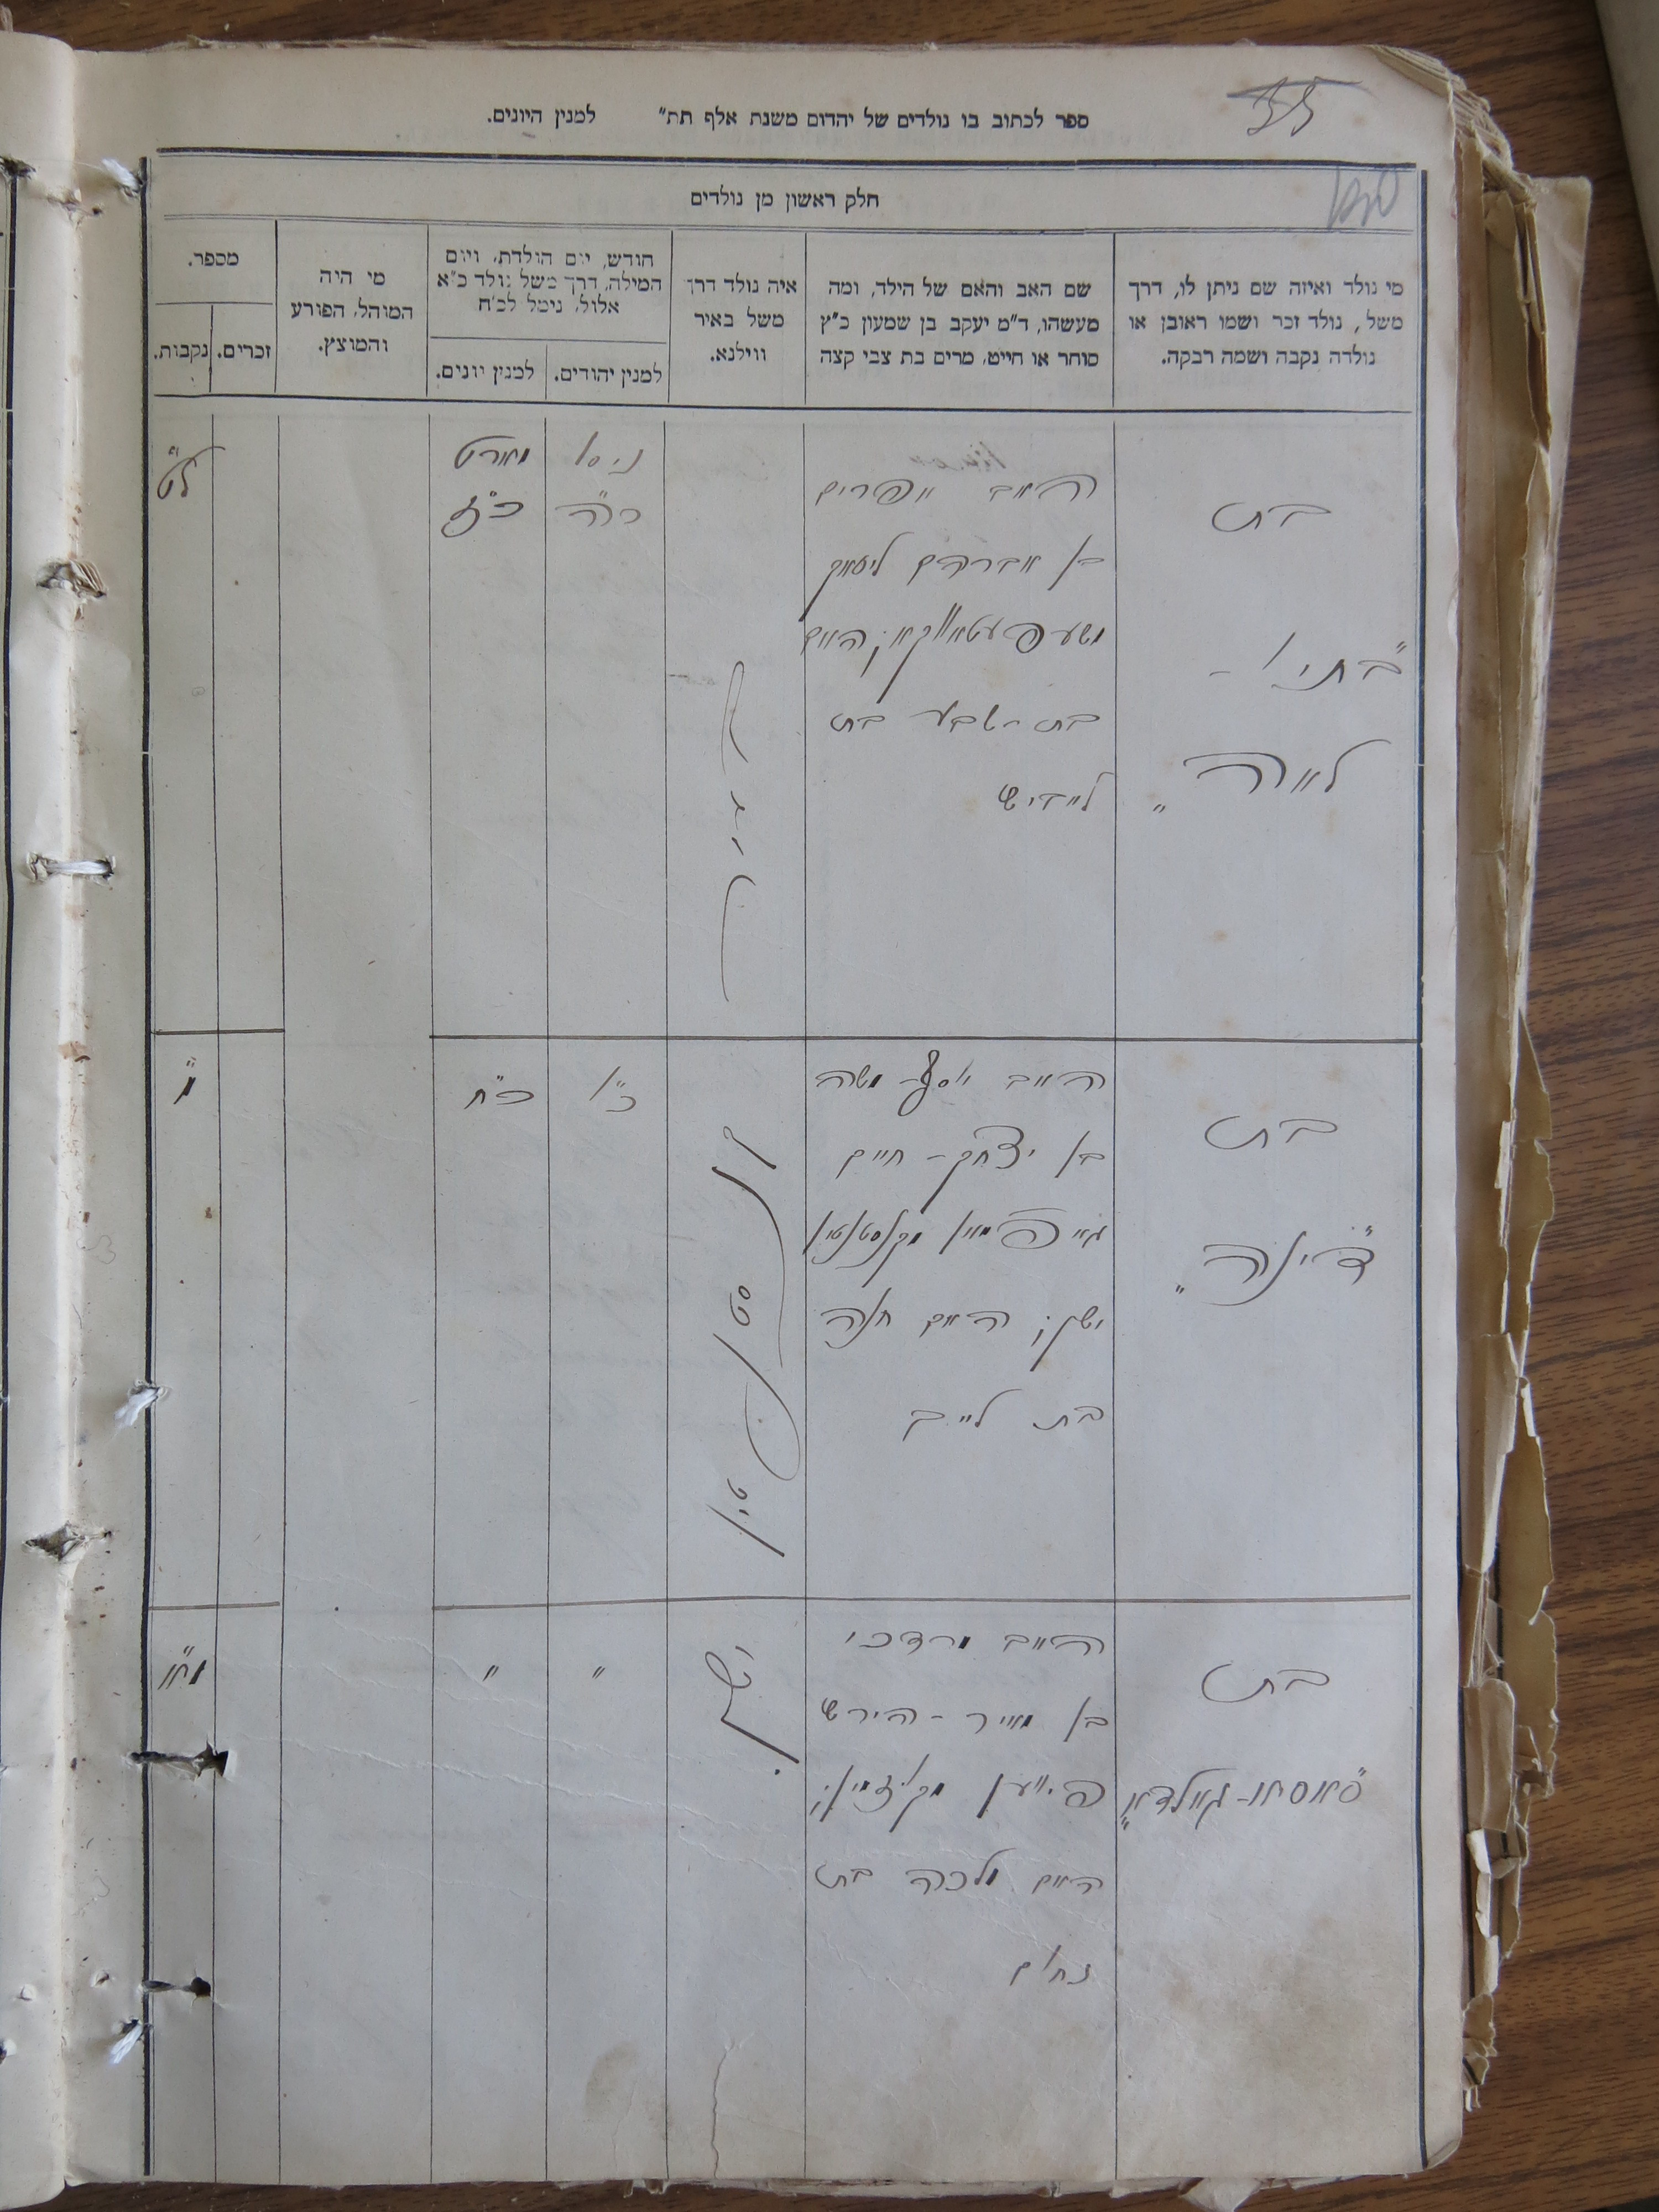 ספר לכתוב בו נולדים של יהדום משנת אלף תת״ למנין היונים.
35
חלק ראשון מן נולדים
מי נולד ואיזה שם ניתן לו, דרך
משל, נולד זכר ושמו ראובן או
נולדה נקבה ושמה רבקה.
שם האב והאם של הילד, ומה
מעשהו, ד״מ יעקב בן שמעון כ״ץ
סוחר או חייט, מרים בת צבי קצה
איה נולד דרך
משל באיר
ווילנא.
חודש, יום הולדת, ויום
המילה, דרך משל נולד כ״א
אלול, נימל לכ״ח
למנין יהודים.
למנין יונים.
מי היה
המוהל, הפורע
והמוצץ.
מספר.
זכרים.
נקבות.
בת
״בתי׳ -
לאה״
האב אפרים
בן אברהם ליטאק
האם
בת-שבע בת
ניסן
כ״ה
מארט
כ״ז
ל״ט
בת
״דינה״
האב יוסף-משה
בן יצחק-חיים
האם חנה
בת לייב
כ״ו
כ״ח
מ״
בת
האב מרדכי
בן מאיר-הירש
האם מלכה בת
נחום
ישן.
״
״
מ״א